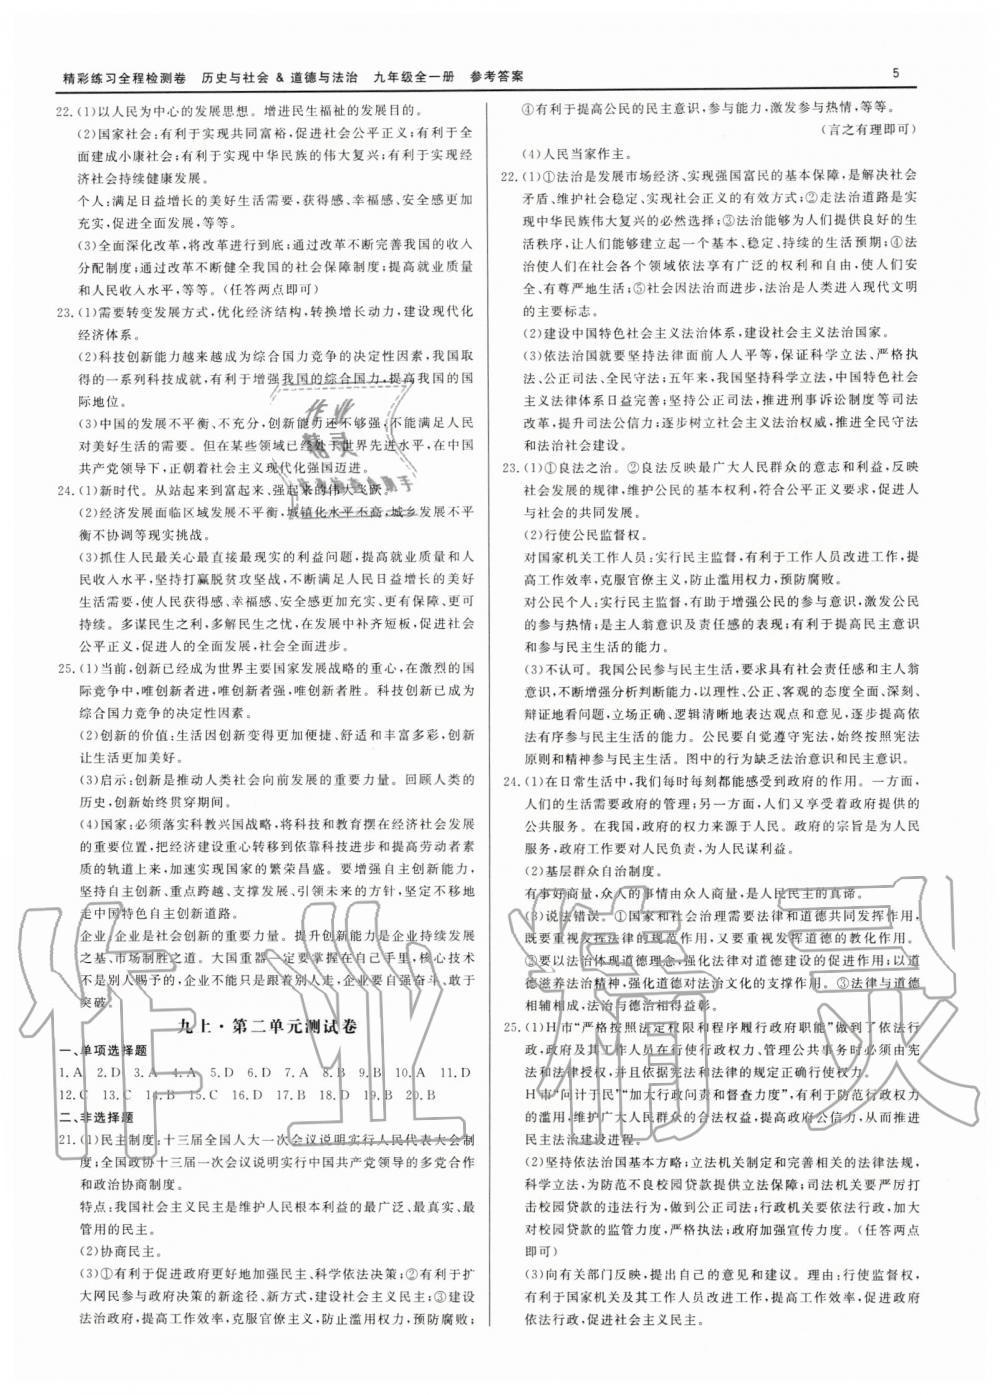 精彩练习全程检测卷 历史与社会 & 道德与法治 九年级全一册 参考答案
5
22.(1)以人民为中心的发展思想。增进民生福祉的发展目的。
(2)国家社会:有利于实现共同富裕,促进社会公平正义;有利于全
面建成小康社会;有利于实现中华民族的伟大复兴;有利于实现经
济社会持续健康发展。
个人:满足日益增长的美好生活需要,获得感、幸福感、安全感更加
充实,促进全面发展,等等。
(3)全面深化改革,将改革进行到底;通过改革不断完善我国的收入
分配制度;通过改革不断健全我国的社会保障制度;提高就业质量
和人民收入水平,等等。(任答两点即可)
23.(1)需要转变发展方式,优化经济结构,转换增长动力,建设现代化
经济体系。
(2)科技创新能力越来越成为综合国力竞争的决定性因素,我国取
得的一系列科技成就,有利于增强我国的综合国力,提高我国的国
际地位。
(3)中国的发展不平衡、不充分,创新能力还不够强,不能满足人民
对美好生活的需要。但在某些领域已经处于世界先进水平,在中国
共产党领导下,正朝着社会主义现代化强国迈进。
24.(1)新时代。从站起来到富起来、强起来的伟大飞跃。
(2)经济发展面临区域发展不平衡,城镇化水平不高,城乡发展不平
衡不协调等现实挑战。
(3)抓住人民最关心最直接最现实的利益问题,提高就业质量和人
民收入水平,坚持打赢脱贫攻坚战,满足人民日益增长的美好
生活需要,使人民获得感、幸福感、安全感更加充实、更有保障、更可
持续。多谋民生之利,多解民生之忧,在发展中补齐短板,促进社会
公平正义,促进人的全面发展,社会全面进步。
25.(1)当前,创新已经成为世界主要国家发展战略的重心,在激烈的国
际竞争中,唯创新者进,唯创新者强,唯创新者胜。科技创新已成为
综合国力竞争的决定性因素。
(2)创新的价值:生活因创新变得更加便捷、舒适和丰富多彩,创新
让生活更加美好。
(3)启示:创新是推动人类社会向前发展的重要力量。回顾人类的
历史,创新始终贯穿期间。
(4)国家:必须落实科教兴国战略,将科技和教育摆在经济社会发展
的重要位置,把经济建设重心转移到依靠科技进步和提高劳动者素
质的轨道上来,加速实现国家的繁荣昌盛。要增强自主创新能力,
坚持自主创新、重点跨越、支撑发展、引领未来的方针,坚定不移地
走中国特色自主创新道路。
企业:企业是社会创新的重要力量。提升创新能力是企业持续发展
之基、市场制胜之道。大国重器一定要掌握在自己手里,核心技术
不是别人赐予的,企业不能只是跟着别人走,企业要自强奋斗、敢于
突破。
九上·第二单元测试卷
一、单项选择题
1.A 2.D 3.A 4.A 5.D 6.D 7.D 8.B 9.D 10.A 11.D
12.C 13.C 14.B 15.B 16.C 17.D 18.B 19.B 20.B
二、非选择题
21.(1)民主制度:十三届全国人大一次会议说明实行人民代表大会制
度;全国政协十三届一次会议说明实行中国共产党领导的多党合作
和政治协商制度。
特点:我国社会主义民主是维护人民根本利益的最广泛、最真实、最
管用的民主。
(2)协商民主。
(3)①有利于促进政府更好地加强民主、科学依法决策;②有利于扩
大网民参与政府决策的新途径、新方式,建设社会主义民主;③建设
法治政府,提高工作效率,克服官僚主义,防止滥用权力,预防腐败;
④有利于提高公民的民主意识,参与能力,激发参与热情,等等。
(言之有理即可)
(4)人民当家作主。
22.(1)①法治是发展市场经济、实现强国富民的基本保障,是解决社会
矛盾、维护社会稳定、实现社会正义的有效方式;②走法治道路是实
现中华民族伟大复兴的必然选择;③法治能够为人们提供良好的生
活秩序,让人们建立起一个基本、稳定、持续的生活预期;④法
治使人们在社会各个领域依法享有广泛的权利和自由,使人们安
全、有尊严地生活;⑤社会因法治而进步,法治是人类进入现代文明
的主要标志。
(2)建设中国特色社会主义法治体系,建设社会主义法治国家。
(3)依法治国就要坚持法律面前人人平等,保证科学立法、严格执
法、公正司法、全民守法;五年来,我国坚持科学立法,中国特色社会
主义法律体系日益完善;坚持公正司法,推进刑事诉讼制度等司法
改革,提升司法公信力;逐步树立社会主义法治观念,推进全民守法
和法治社会建设。
23.(1)①良法之治。②良法反映最广大人民群众的意志和利益,反映
社会发展的规律,维护公民的基本权利,符合公平正义要求,促进人
与社会的共同发展。
(2)行使公民监督权。
对国家机关工作人员:实行民主监督,有利于工作人员改进工作,提
高工作效率,克服官僚主义,防止滥用权力,预防腐败。
对公民个人:实行民主监督,有助于增强公民的参与意识,激发公民
的参与热情;是主人翁意识及责任感的表现;有利于提高民主意识
和参与能力。
(3)不认可。我国公民参与民主生活,要求具有社会责任感和主人翁
意识,不断增强分析判断能力,以理性、公正、客观的态度全面、深刻、
辩证地看问题,立场正确、逻辑清晰地表达观点和意见,逐步提高依
法有序参与民主生活的能力。公民要自觉遵守宪法,始终按照宪法
原则和精神参与民主生活。图中的行为缺乏法治意识和民主意识。
24.(1)在日常生活中,我们每时每刻都能感受到政府的作用。一方面,
人们的生活需要政府的管理;另一方面,人们又享受着政府提供的
公共服务。在我国,政府的权力来源于人民。政府的宗旨是为人民
服务,政府工作要对人民负责,为人民谋利益。
(2)基层群众自治制度。
有事好商量,众人的事情由众人商量,是人民民主的真谛。
(3)说法错误。①国家和社会治理需要法律和道德共同发挥作用,
既要重视发挥法律的规范作用,又要重视发挥道德的教化作用。
②要以法治体现道德理念,强化法律对道德建设的促进作用,以道
德滋养法治精神,强化道德对法治文化的支撑作用。③法律与道德
相辅相成,法治与德治相得益彰。
25.(1)H市“严格按照法定权限和程序履行政府职能”做到了依法行
政,政府及其工作人员在行使行政权力、管理公共事务时必须依宪
法和法律授权,并且依据宪法和法律的规定正确行使权力。
H市“问计于民”“加大行政问责和督查力度”,有利于防止行政权力
的滥用,维护广大人民群众的合法权益,提高政府公信力,从而推进
民主法治建设进程。
(2)坚持依法治国基本方略;立法机关制定和完善相关的法律法规,
科学立法,为防范不良校园贷款提供立法保障;司法机关严厉打
击校园贷款的违法行为,保证公正司法;行政机关依法行政,加大
对校园贷款的监管力度,严格执法;政府加强宣传力度。(任答两点
即可)
(3)向有关部门反映,提出自己的意见和建议。理由:行使监督权,
有利于国家机关及其工作人员改进工作,提高工作效率,促进政府
依法行政,促进社会主义民主。
作业
精灵
作业精灵